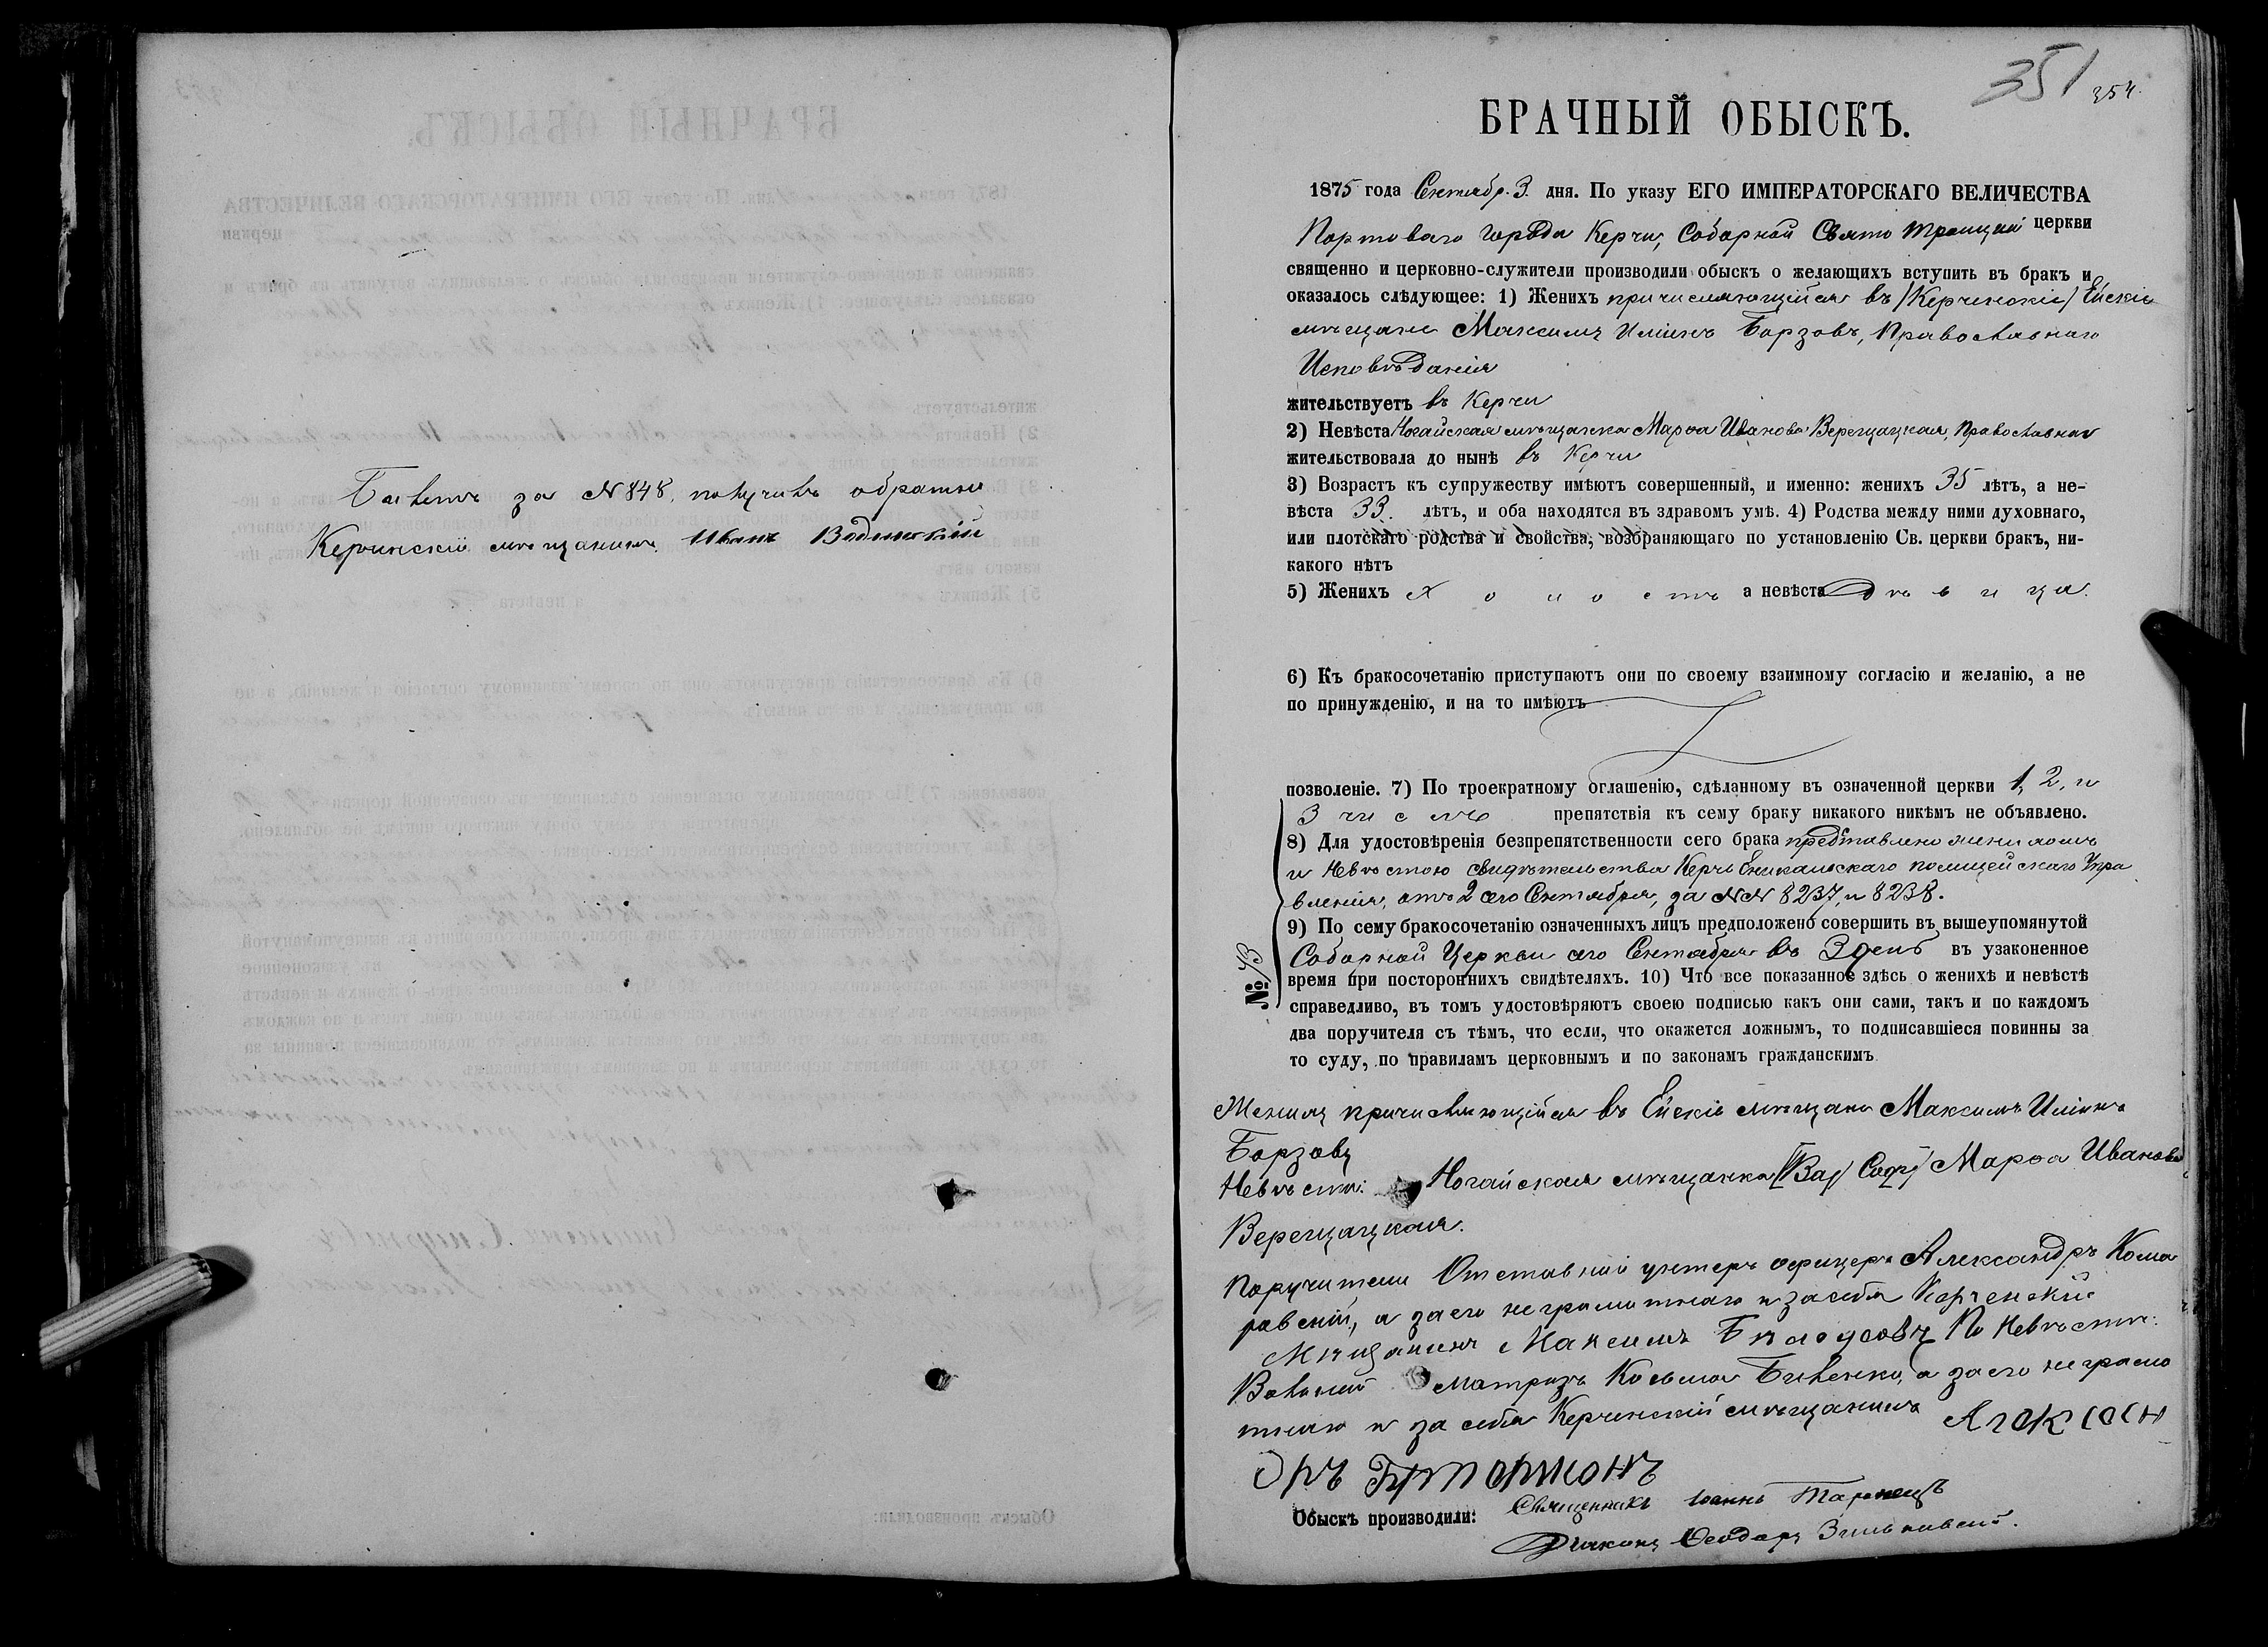 Билетъ за № 848, получилъ обратно
Керчинскій мѣщанинъ Иванъ
351 354.
БРАЧНЫЙ ОБЫСКЪ.
1875 года Сентябр. 3. дня. По указу ЕГО ИМПЕРАТОРСКАГО ВЕЛИЧЕСТВА
Портоваго города Керчи, Соборной Свято Троицкой церкви
священно и церковно-служители производили обыскъ о желающихъ вступить въ бракъ и
оказалось слѣдующее: 1) Женихъ причисляющійся въ /Керченскіе/ Ейскіе
мѣщане Максимъ Илiинъ Борзовъ, Православнаго
Исповѣданія
жительствуетъ въ Керчи
2) Невѣста Ногайская мѣщанка Марѳа Иванова Верещацкая, Православная
жительствовала до нынѣ въ Керчи
3) Возрастъ къ супружеству имѣютъ совершенный, и именно: женихъ 35 лѣтъ, а не-
вѣста 33. лѣтъ, и оба находятся въ здравомъ умѣ. 4) Родства между ними духовнаго,
или плотскаго родства и свойства, возбраняющаго по установленію Св. церкви бракъ, ни-
какого нѣтъ
5) Женихъ холостъ а невѣста дѣвица.
6) Къ бракосочетанію приступаютъ они по своему взаимному согласію и желанію, а не
по принужденію, и на то имѣютъ
позволеніе. 7) По троекратному оглашенію, сдѣланному въ означенной церкви 1, 2, и
3 числѣ препятствія къ сему браку никакого никѣмъ не объявлено.
8) Для удостовѣренія безпрепятственности сего брака представлено женихомъ
и Невѣстою свидѣтельства Керчь Еникальскаго полицейскаго Упра
вленія, отъ 2 сего Сентября, за №№ 8237, и 8238.
9) По сему бракосочетанію означенныхъ лицъ предположено совершить въ вышеупомянутой
Соборной Церкви сего Сентября въ 3 день въ узаконенное
№ 73
время при постороннихъ свидѣтеляхъ. 10) Что все показанное здѣсь о женихѣ и невѣстѣ
справедливо, въ томъ удостовѣряютъ своею подписью какъ они сами, такъ и по каждомъ
два поручителя съ тѣмъ, что если, что окажется ложнымъ, то подписавшіеся повинны за
то суду, по правиламъ церковнымъ и по законамъ гражданскимъ
Женихъ причисляющійся въ Ейскіе мѣщане Максимъ Илiинъ
Борзовъ
Невѣста: Ногайская мѣщанка Марѳа Иванова
Верещацкая.
Поручители Отставной унтеръ офицеръ Александръ Кома
ровскій, а за его неграмотнаго и за себя Керченскій
Мѣщанинъ Максимъ Бѣлоусовъ По Невѣстѣ:
Вольный матрозъ Косьма Бивенко, а за его неграмо
тнаго и за себя Керченскій мѣщанинъ Алоксон
дръ
Обыскъ производили: Священникъ Іоаннъ Таранецъ
Діаконъ Ѳеодоръ Зиньковскій.